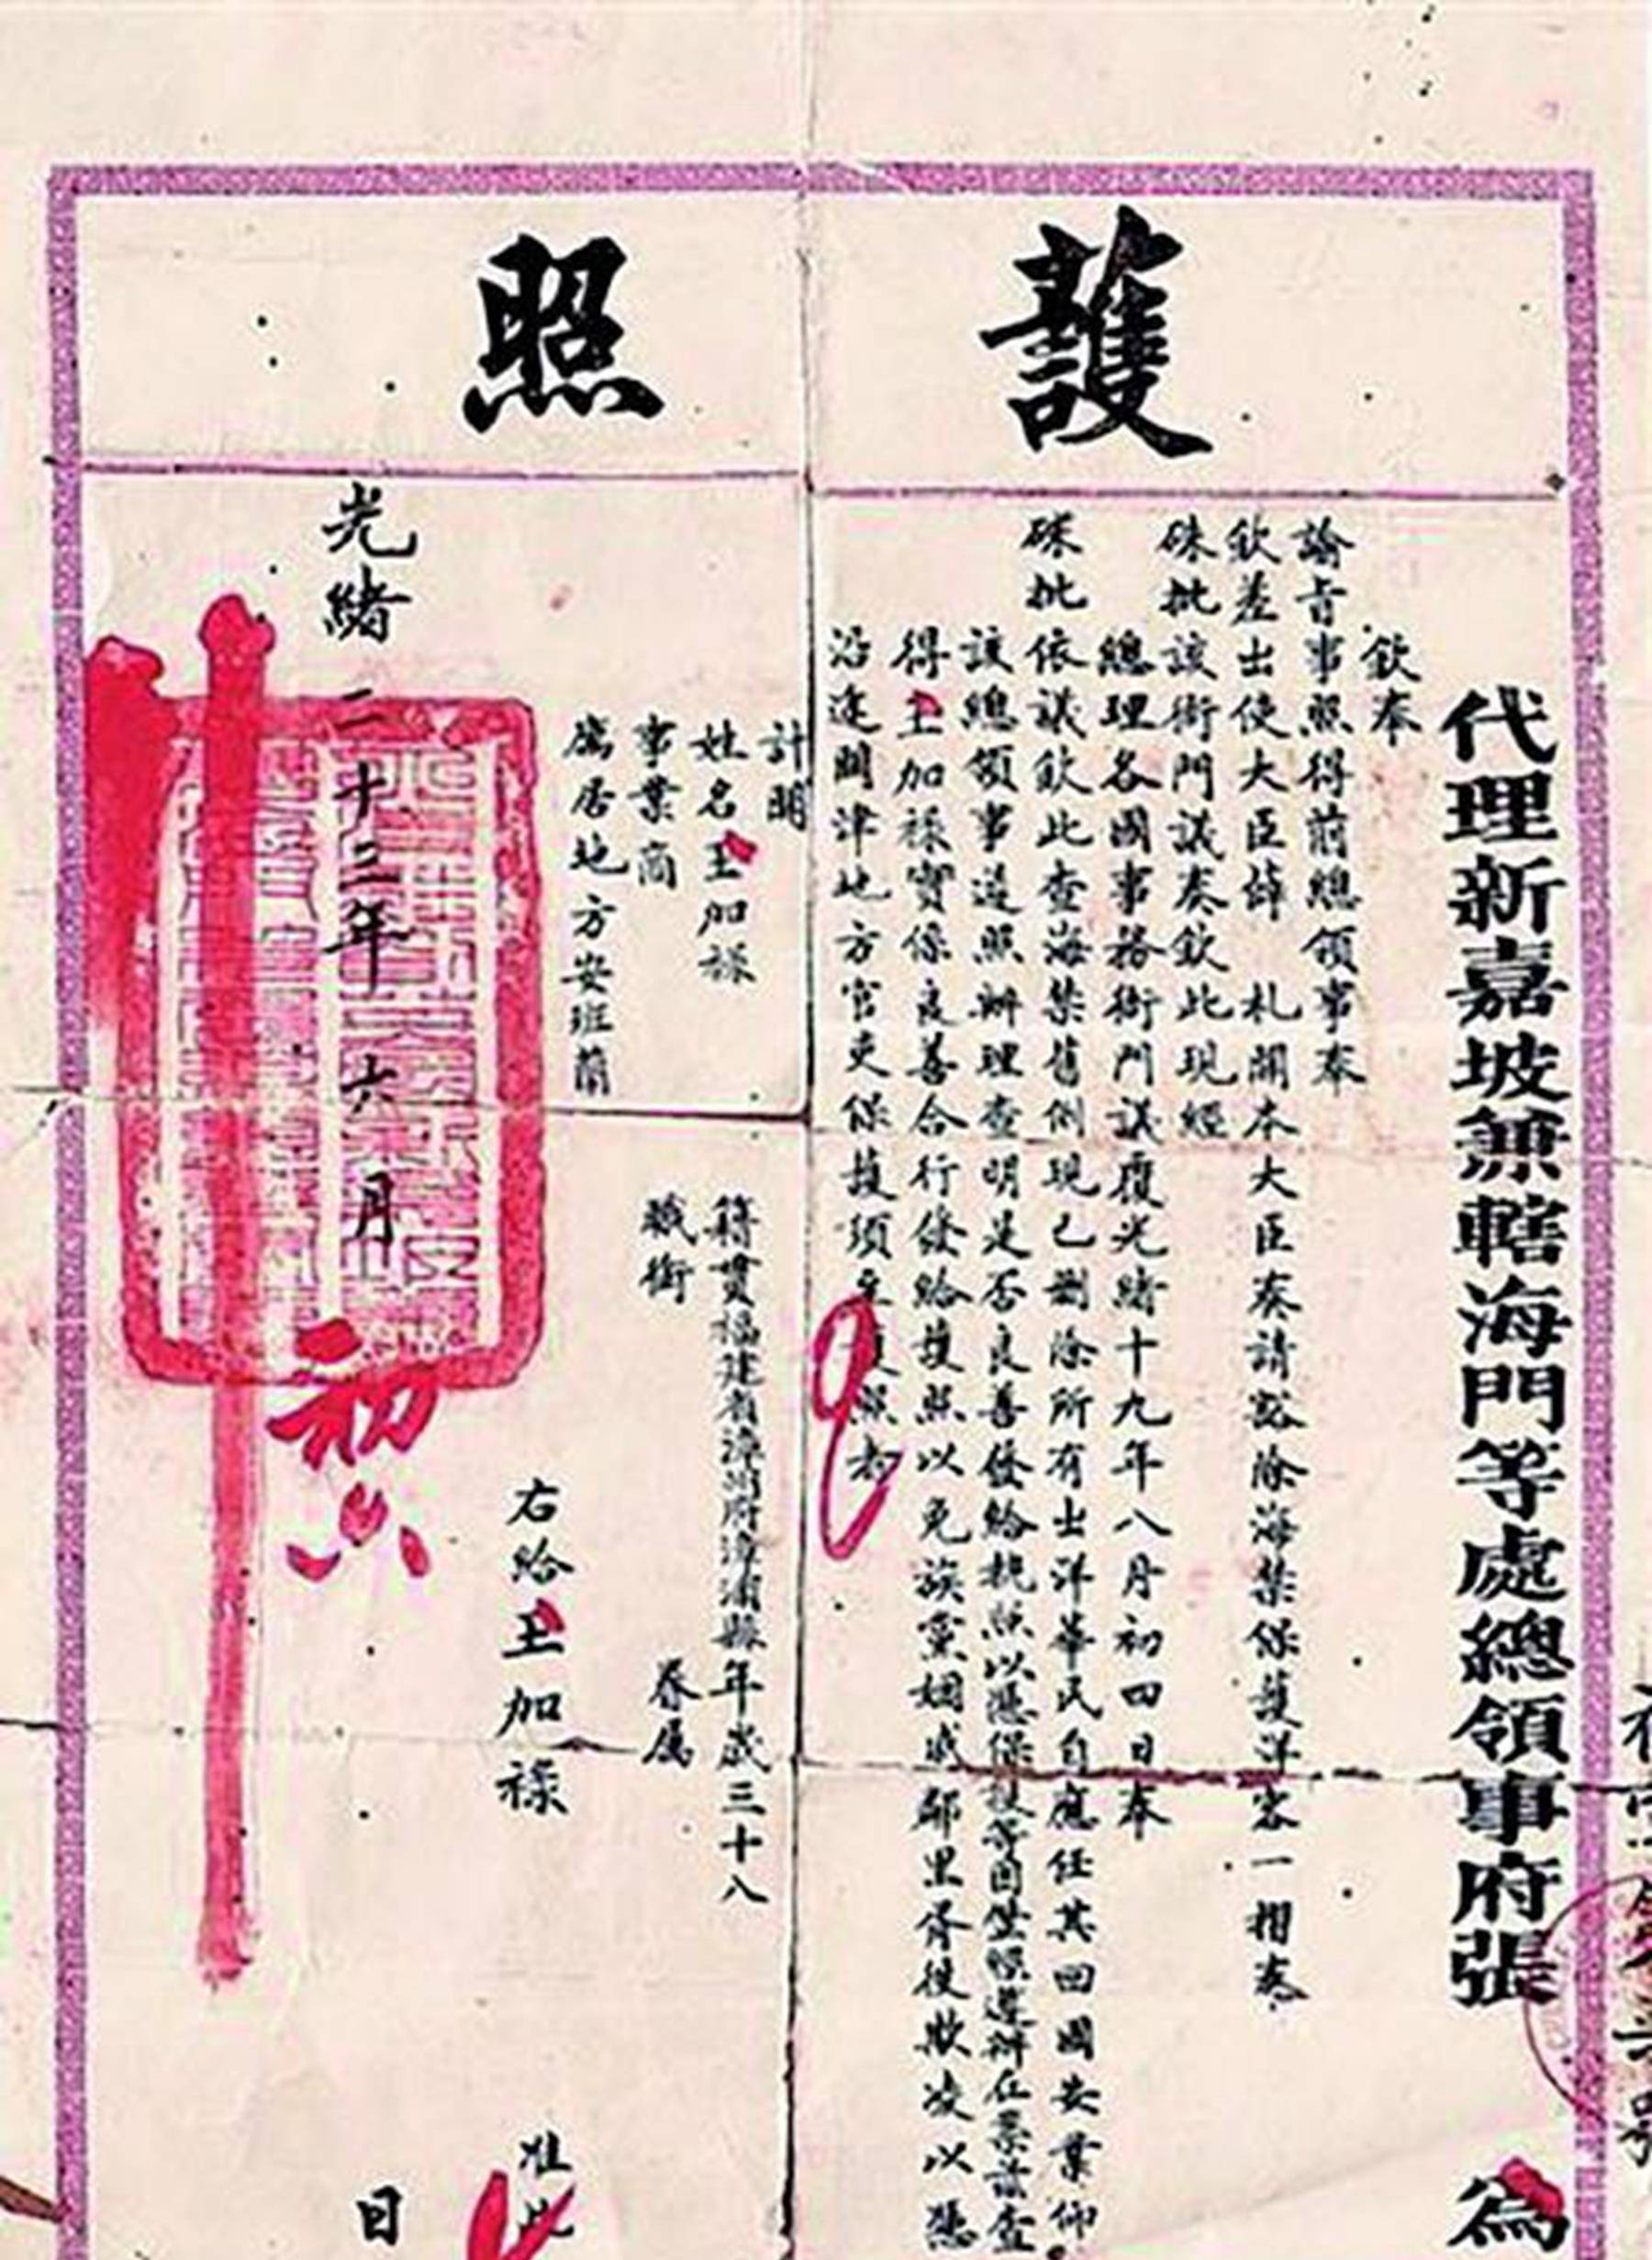 護照
代理新嘉坡兼轄海門等處總領事府張 為
欽奉
諭旨事照得前總領事奉
欽差出使大臣薛 札開本大臣奏請豁除海禁保護洋客一摺奏
硃批該衙門議奏欽此現經
總理各國事務衙門議覆光緒十九年八月初四日奉
硃批依議欽此查海禁舊例現已刪除所有出洋華民自應任其回國安業仰
該總領事遵照辦理查明是否良善發給執照以憑保護等因遵辦在案茲查
得王加祿實係良善合行發給護照以免族黨姻戚鄰里胥役欺凌以憑
沿途關津地方官吏保護須至護照者
計開
姓名王加祿 籍貫福建省漳州府漳浦縣年歲三十八
事業商 職銜 眷属
寓居地方安班蘭
右給王加祿 准此
光緒二十三年六月初六日